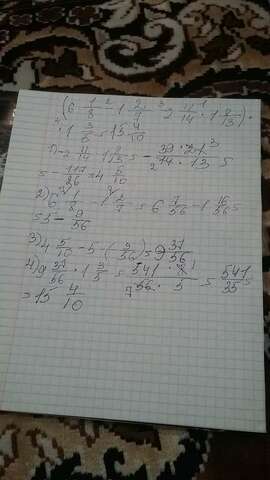 (6 1/8 - 1 2/7 - 2 11/14 · 1 8/13) ·
· 1 3/5 = 15 4/10
1) -2 11/14 · 1 8/13 = - 39 · 21 / 14 · 13 =
= - 117/26 = 4 5/10
2) 6 1/8 - 1 2/7 = 6 7/56 - 1 16/56 =
= 5 - 9/56
3) 4 5/10 - 5 - (9/56) = 9 37/56
4) 9 37/56 · 1 3/5 = 541 · 8 / 56 · 5 = 541/35 =
= 15 4/10